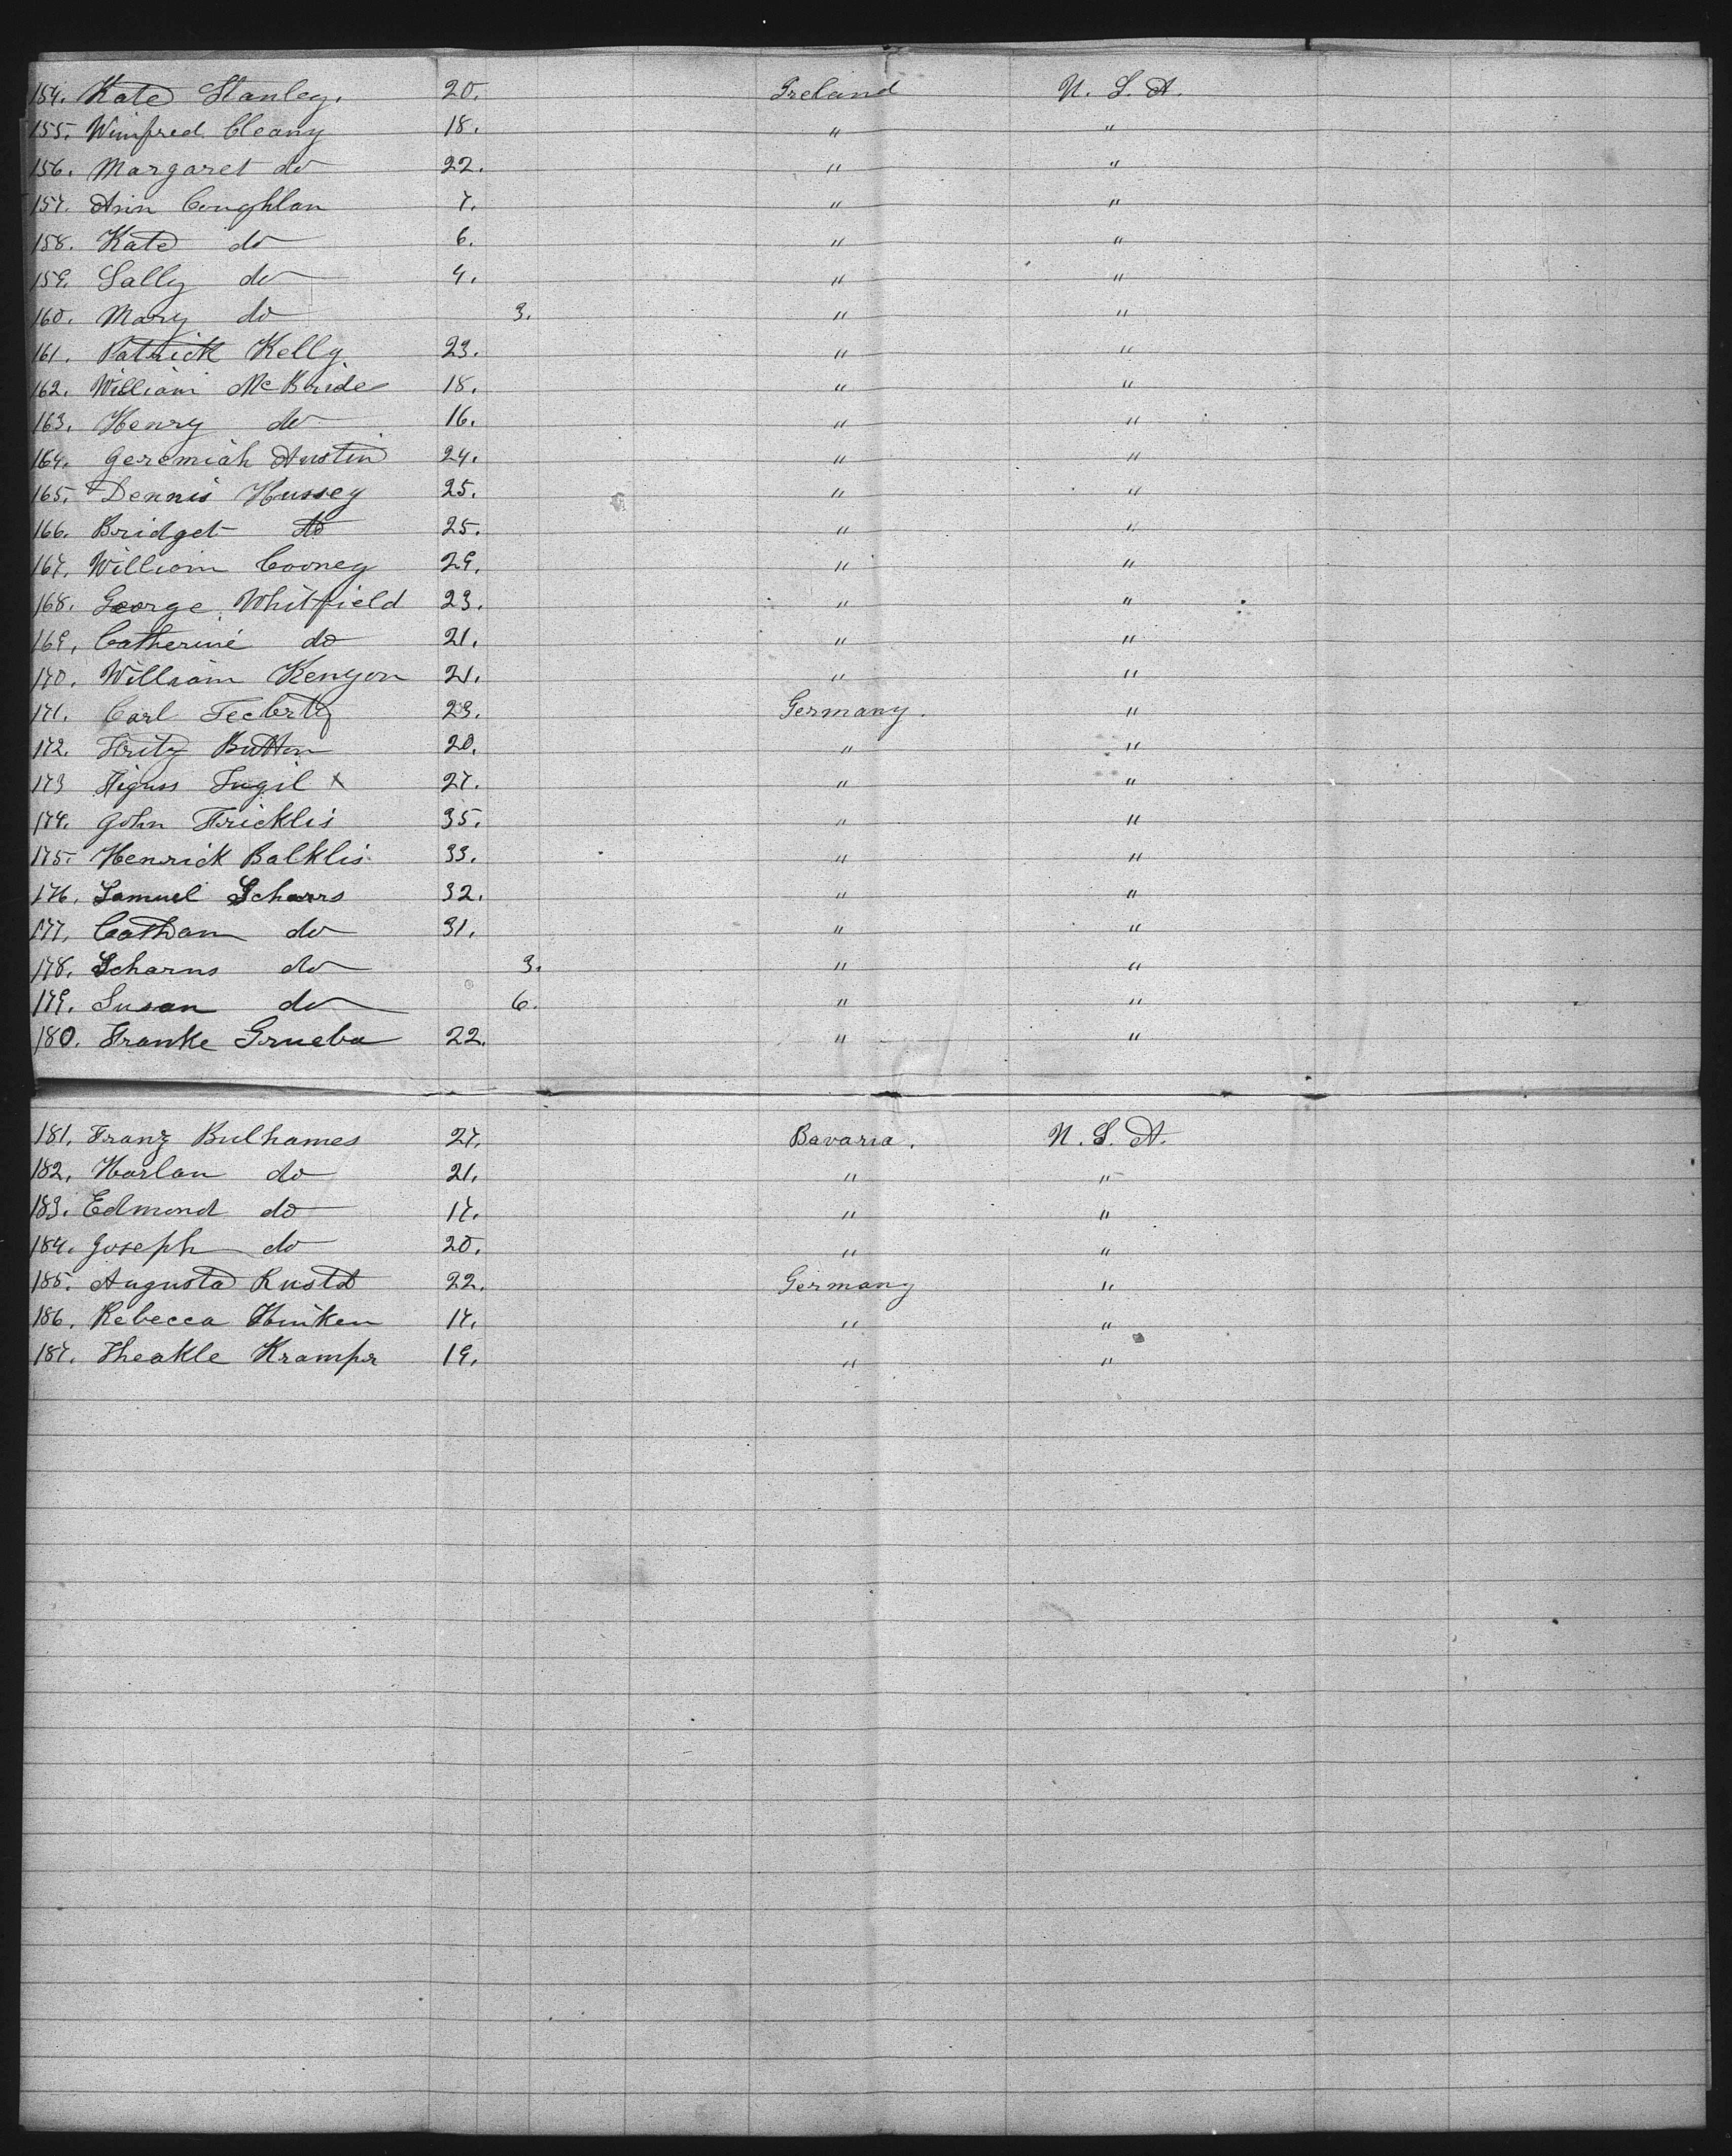 154. Kate Stanley. 20. Ireland U. S. A.
155. Winifred Cleany 18. " "
156. Margaret do 22. " "
157. Ann Coughlan 7. " "
158. Kate do 6. " "
159. Sally do 4. " "
160. Mary do 3. " "
161. Patrick Kelly 23. " "
162. William McBride 18. " "
163. Henry do 16. " "
164. Jeremiah Austin 24. " "
165. Dennis Hussey 25. " "
166. Bridget do 25. " "
167. William Cooney 29. " "
168. George Whitfield 23. " "
169. Catherine do 21. " "
170. William Kenyon 21. " "
171. Carl 23. Germany. "
172. Fritz Button 20. " "
173 Sugil x 27. " "
174. John Fricklis 35. " "
175. Henrick Balklis 33. " "
176. Samuel Scharrs 32. " "
177. do 31. " "
178. Scharns do 3. " "
179. Susan do 6. " "
180. Franke Grueba 22. " "
181. Franz Bulhames 27. Bavaria. U. S. A.
182. Harlan do 21. " "
183. Edmond do 17. " "
184. Joseph do 20. " "
185. Augusta 22. Germany "
186. Rebecca 17. " "
187. Theakle Krampr 19. " "